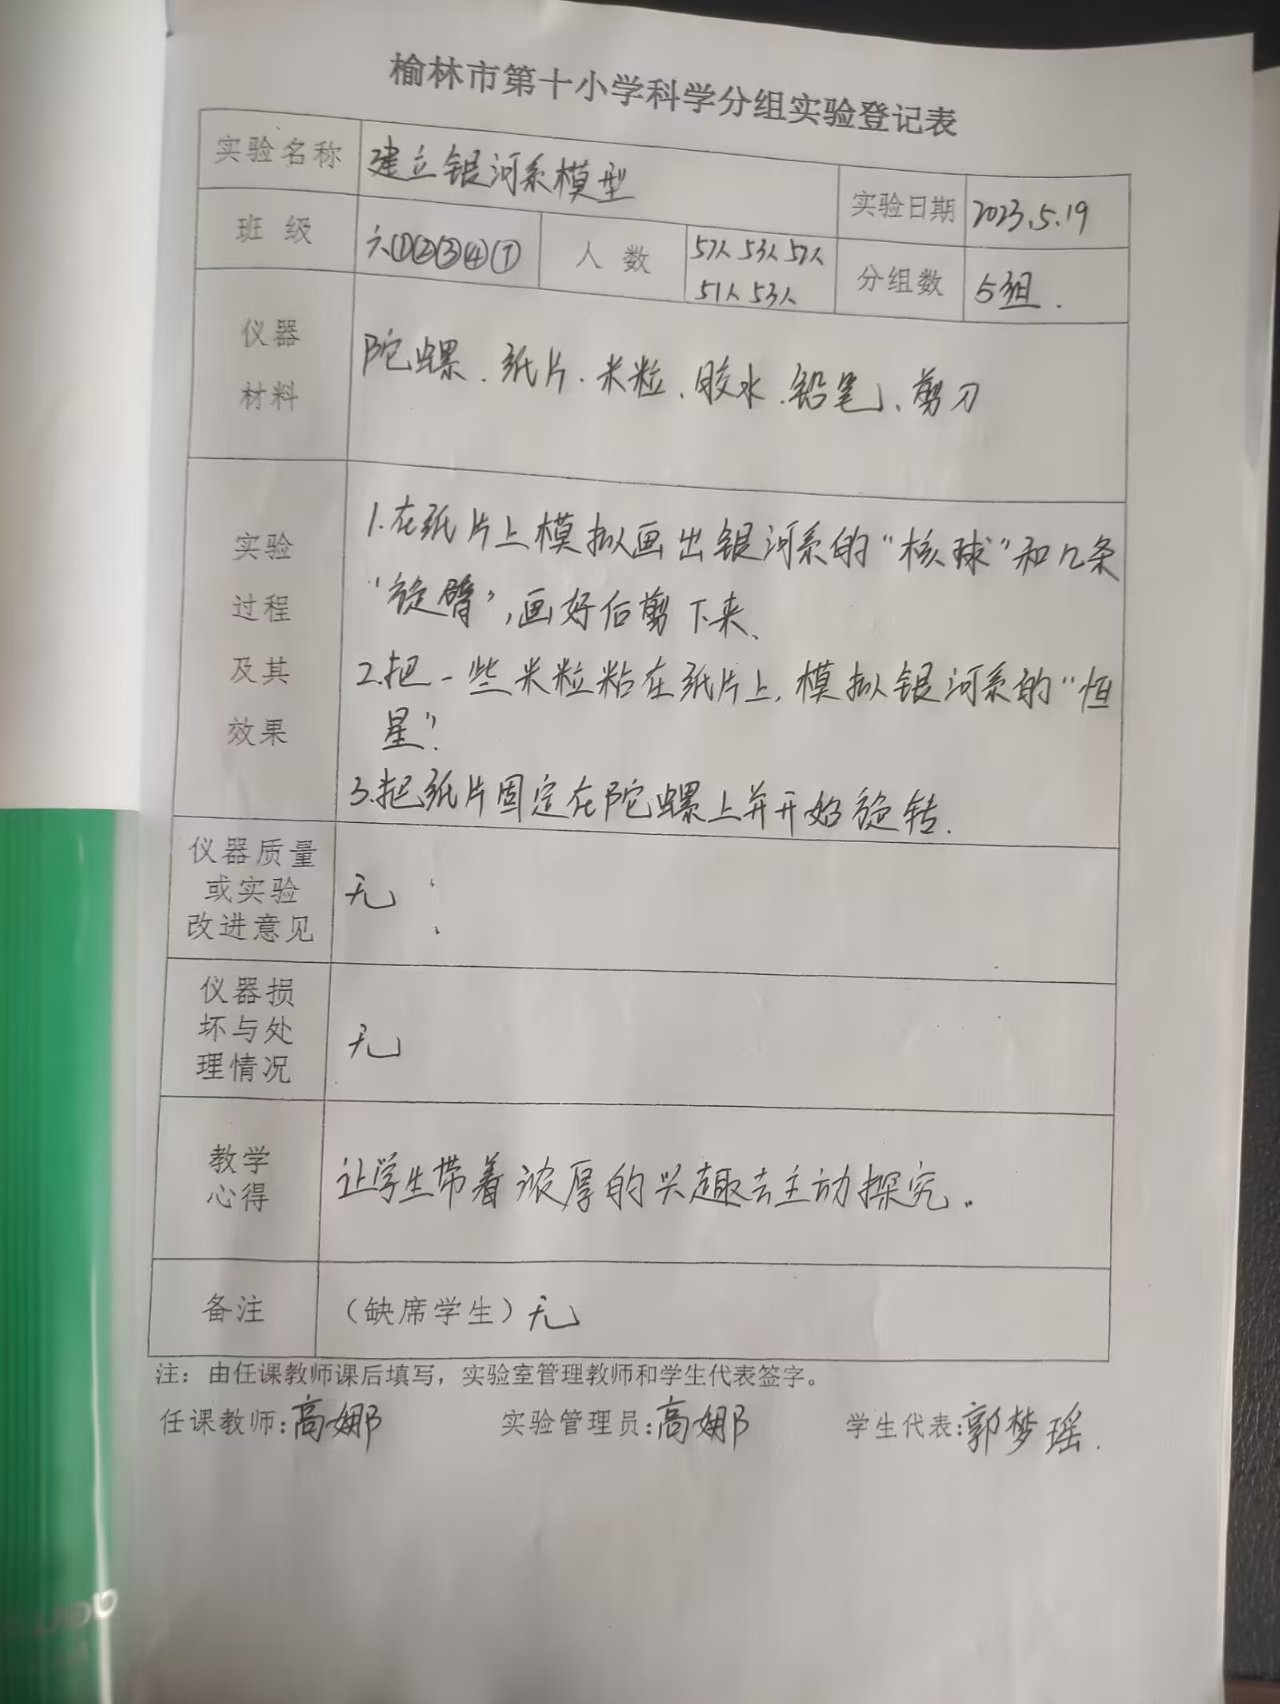 榆林市第十小学科学分组实验登记表
实验名称 建立银河系模型 实验日期 2023.5.19
班级 六①②③④⑦ 人数 57人 53人 57人
51人 53人 分组数 5组.
仪器
材料
陀螺、纸片、米粒、胶水、铅笔、剪刀
实验
过程
及其
效果
1.在纸片上模拟画出银河系的“核球”和几条
“旋臂”,画好后剪下来、
2.把一些米粒粘在纸片上,模拟银河系的“恒
星”.
3.把纸片固定在陀螺上并开始旋转.
仪器质量
或实验
改进意见
无
仪器损
坏与处
理情况
无
教学
心得
让学生带着浓厚的兴趣去主动探究。
备注 （缺席学生）无
注：由任课教师课后填写，实验室管理教师和学生代表签字。
任课教师:高娜 实验管理员:高娜 学生代表:郭梦瑶.